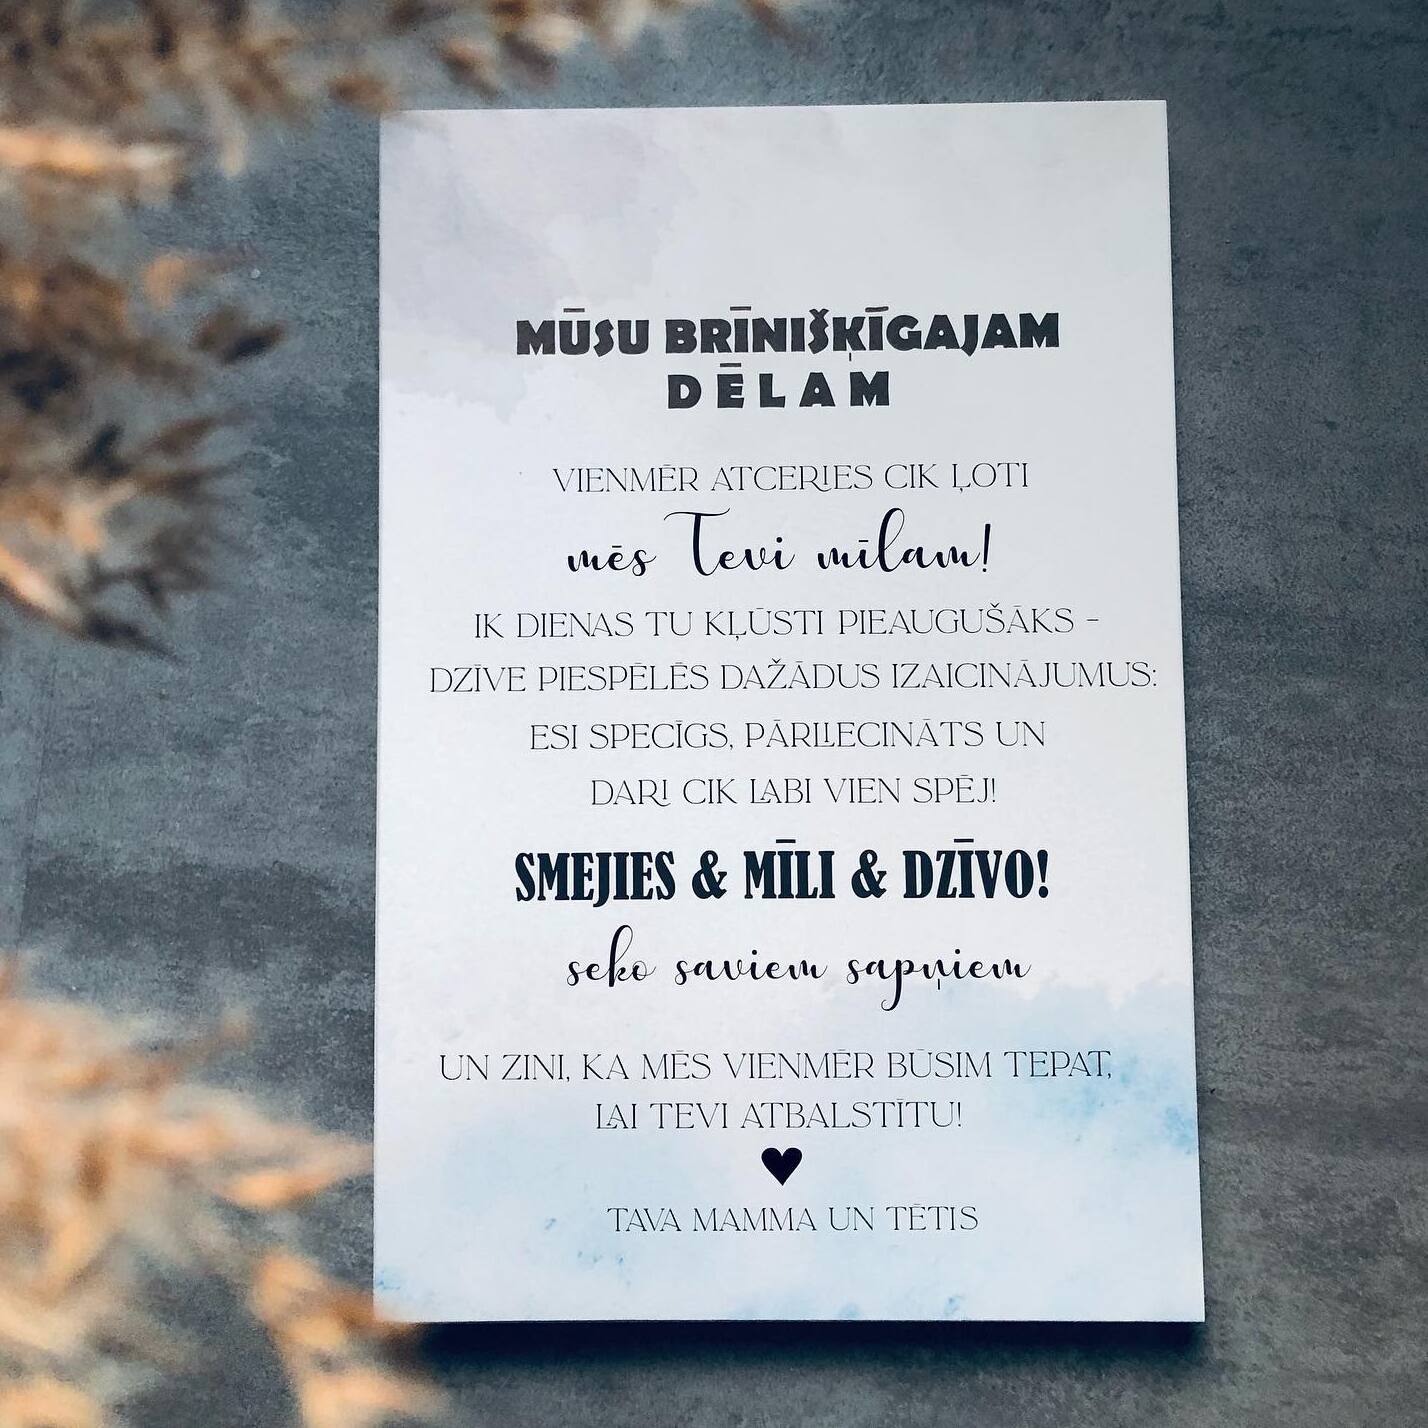 MŪSU BRĪNIŠĶĪGAJAM
DĒLAM
VIENMĒR ATCERIES CIK ĻOTI
mēs Tevi mīlam!
IK DIENAS TU KĻŪSTI PIEAUGUŠĀKS -
DZĪVE PIESPĒLĒS DAŽĀDUS IZAICINĀJUMUS:
ESI SPECĪGS, PĀRLIECINĀTS UN
DARI CIK LABI VIEN SPĒJ!
SMEJIES & MĪLI & DZĪVO!
seko saviem sapņiem
UN ZINI, KA MĒS VIENMĒR BŪSIM TEPAT,
LAI TEVI ATBALSTĪTU!
TAVA MAMMA UN TĒTIS